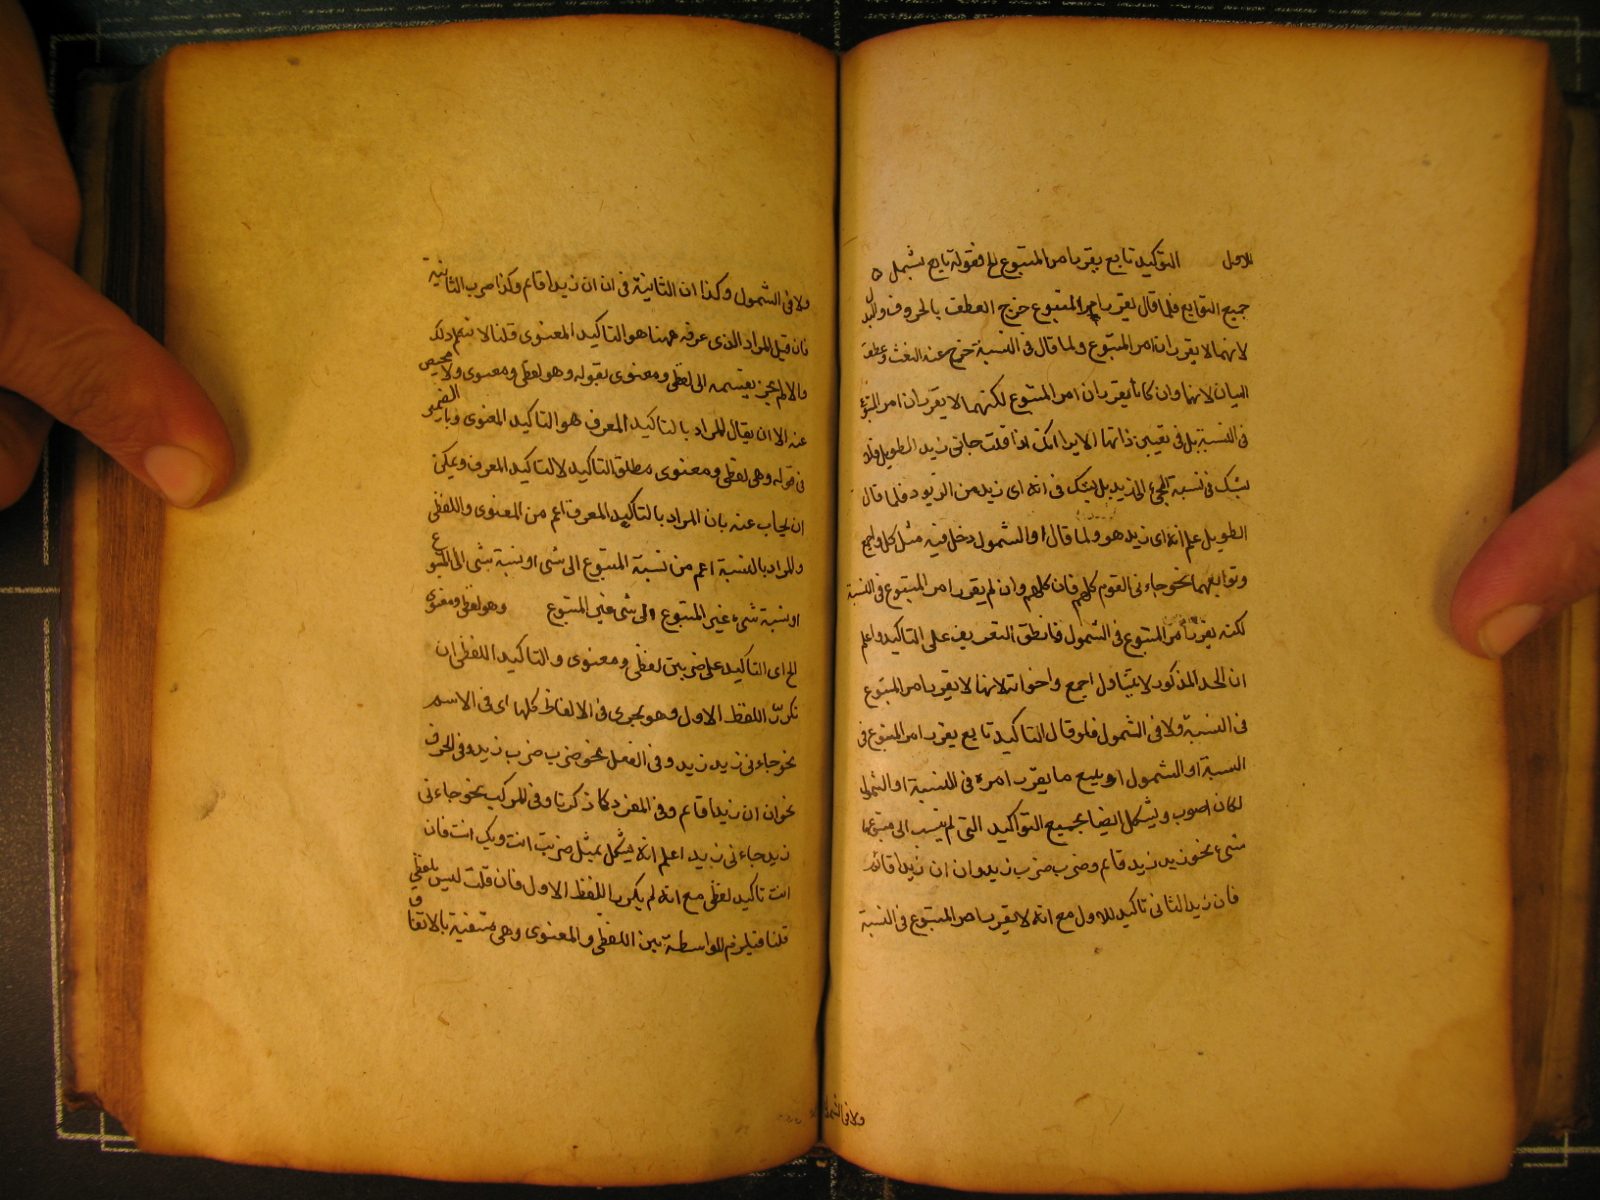 للاول التوكيد تابع يقرر امر المتبوع الخ فقوله تابع يشمل
جميع التوابع فلما قال يقرر امر المتبوع خرج العطف بالحروف والبدل
لانهما لا يقرران امر المتبوع ولما قال فى النسبة خرج عنه النعت وعطف
البيان لانهما وان كانا يقرران امر المتبوع لكنهما لا يقرران امر المتبوع
فى النسبة بل فى تعيين ذاتها الا يرا انك اذا قلت جانى زيد الطويل فلا
يشك فى نسبة المجىء الى زيد بل يشك فى انه اى زيد من الزيود فلما قال
الطويل علم انه اى زيد هو ولما قال او الشمول دخل فيه مثل كل واجمع
وتوابعهما نحو جاءنى القوم كلهم فان كلهم وان لم يقرر امر المتبوع فى النسبة
لكنه يقرر امر المتبوع فى الشمول فانطبق التعريف على التاكيد واعلم
ان الحد المذكور لا يتناول اجمع واخواته لانها لا يقرر امر المتبوع
فى النسبة ولا فى الشمول فلو قال التاكيد تابع يقرر امر المتبوع فى
النسبة او الشمول او يتبع ما يقرر امره فى النسبة او الشمول
لكان اصوب ويشكل ايضا بجميع التواكيد التى لم ينسب الى متبوعها
شىء نحو زيد زيد قائم وضرب ضرب زيد وان ان زيدا قائم
فان زيدا الثانى تاكيد للاول مع انه لا يقرر امر المتبوع فى النسبة
ولا فى الشمول
ولا فى الشمول وكذا ان الثانية فى ان ان زيدا قائم وكذا ضرب الثانية
فان قيل المراد الذى عرفه ههنا هو التاكيد المعنوى قلنا لا نسلم ذلك
والا لم يجز تقسيمه الى لفظى ومعنوى بقوله وهو لفظى ومعنوى ولا محيص
عنه الا ان يقال المراد بالتاكيد المعرف هو التاكيد المعنوى وبالضمير
فى قوله وهى لفظى ومعنوى مطلق التاكيد لا التاكيد المعرف ويمكن
ان يجاب عنه بان المراد بالتاكيد المعرف اعم من المعنوى واللفظى
والمراد بالنسبة اعم من نسبة المتبوع الى شى او نسبة شى الى المتبوع
او نسبة شىء غير المتبوع الى شى غير المتبوع وهو لفظى ومعنوى
الخ اى التاكيد على ضربين لفظى ومعنوى والتاكيد اللفظى ان
تكرر اللفظ الاول وهو يجرى فى الالفاظ كلها اى فى الاسم
نحو جاءنى زيد زيد وفى الفعل نحو ضرب ضرب زيد وفى الحرف
نحو ان ان زيدا قائم وفى المفرد كما ذكرنا وفى المركب نحو جاءنى
زيد جاءنى زيد اعلم انه يشكل بمثل ضربت انت وبك انت فان
انت تاكيد لفظى مع انه لم يكرر اللفظ الاول فان قلت ليس بلفظى
قلنا فيلزم الواسطة بين اللفظى والمعنوى وهى منتفية بالاتفاق